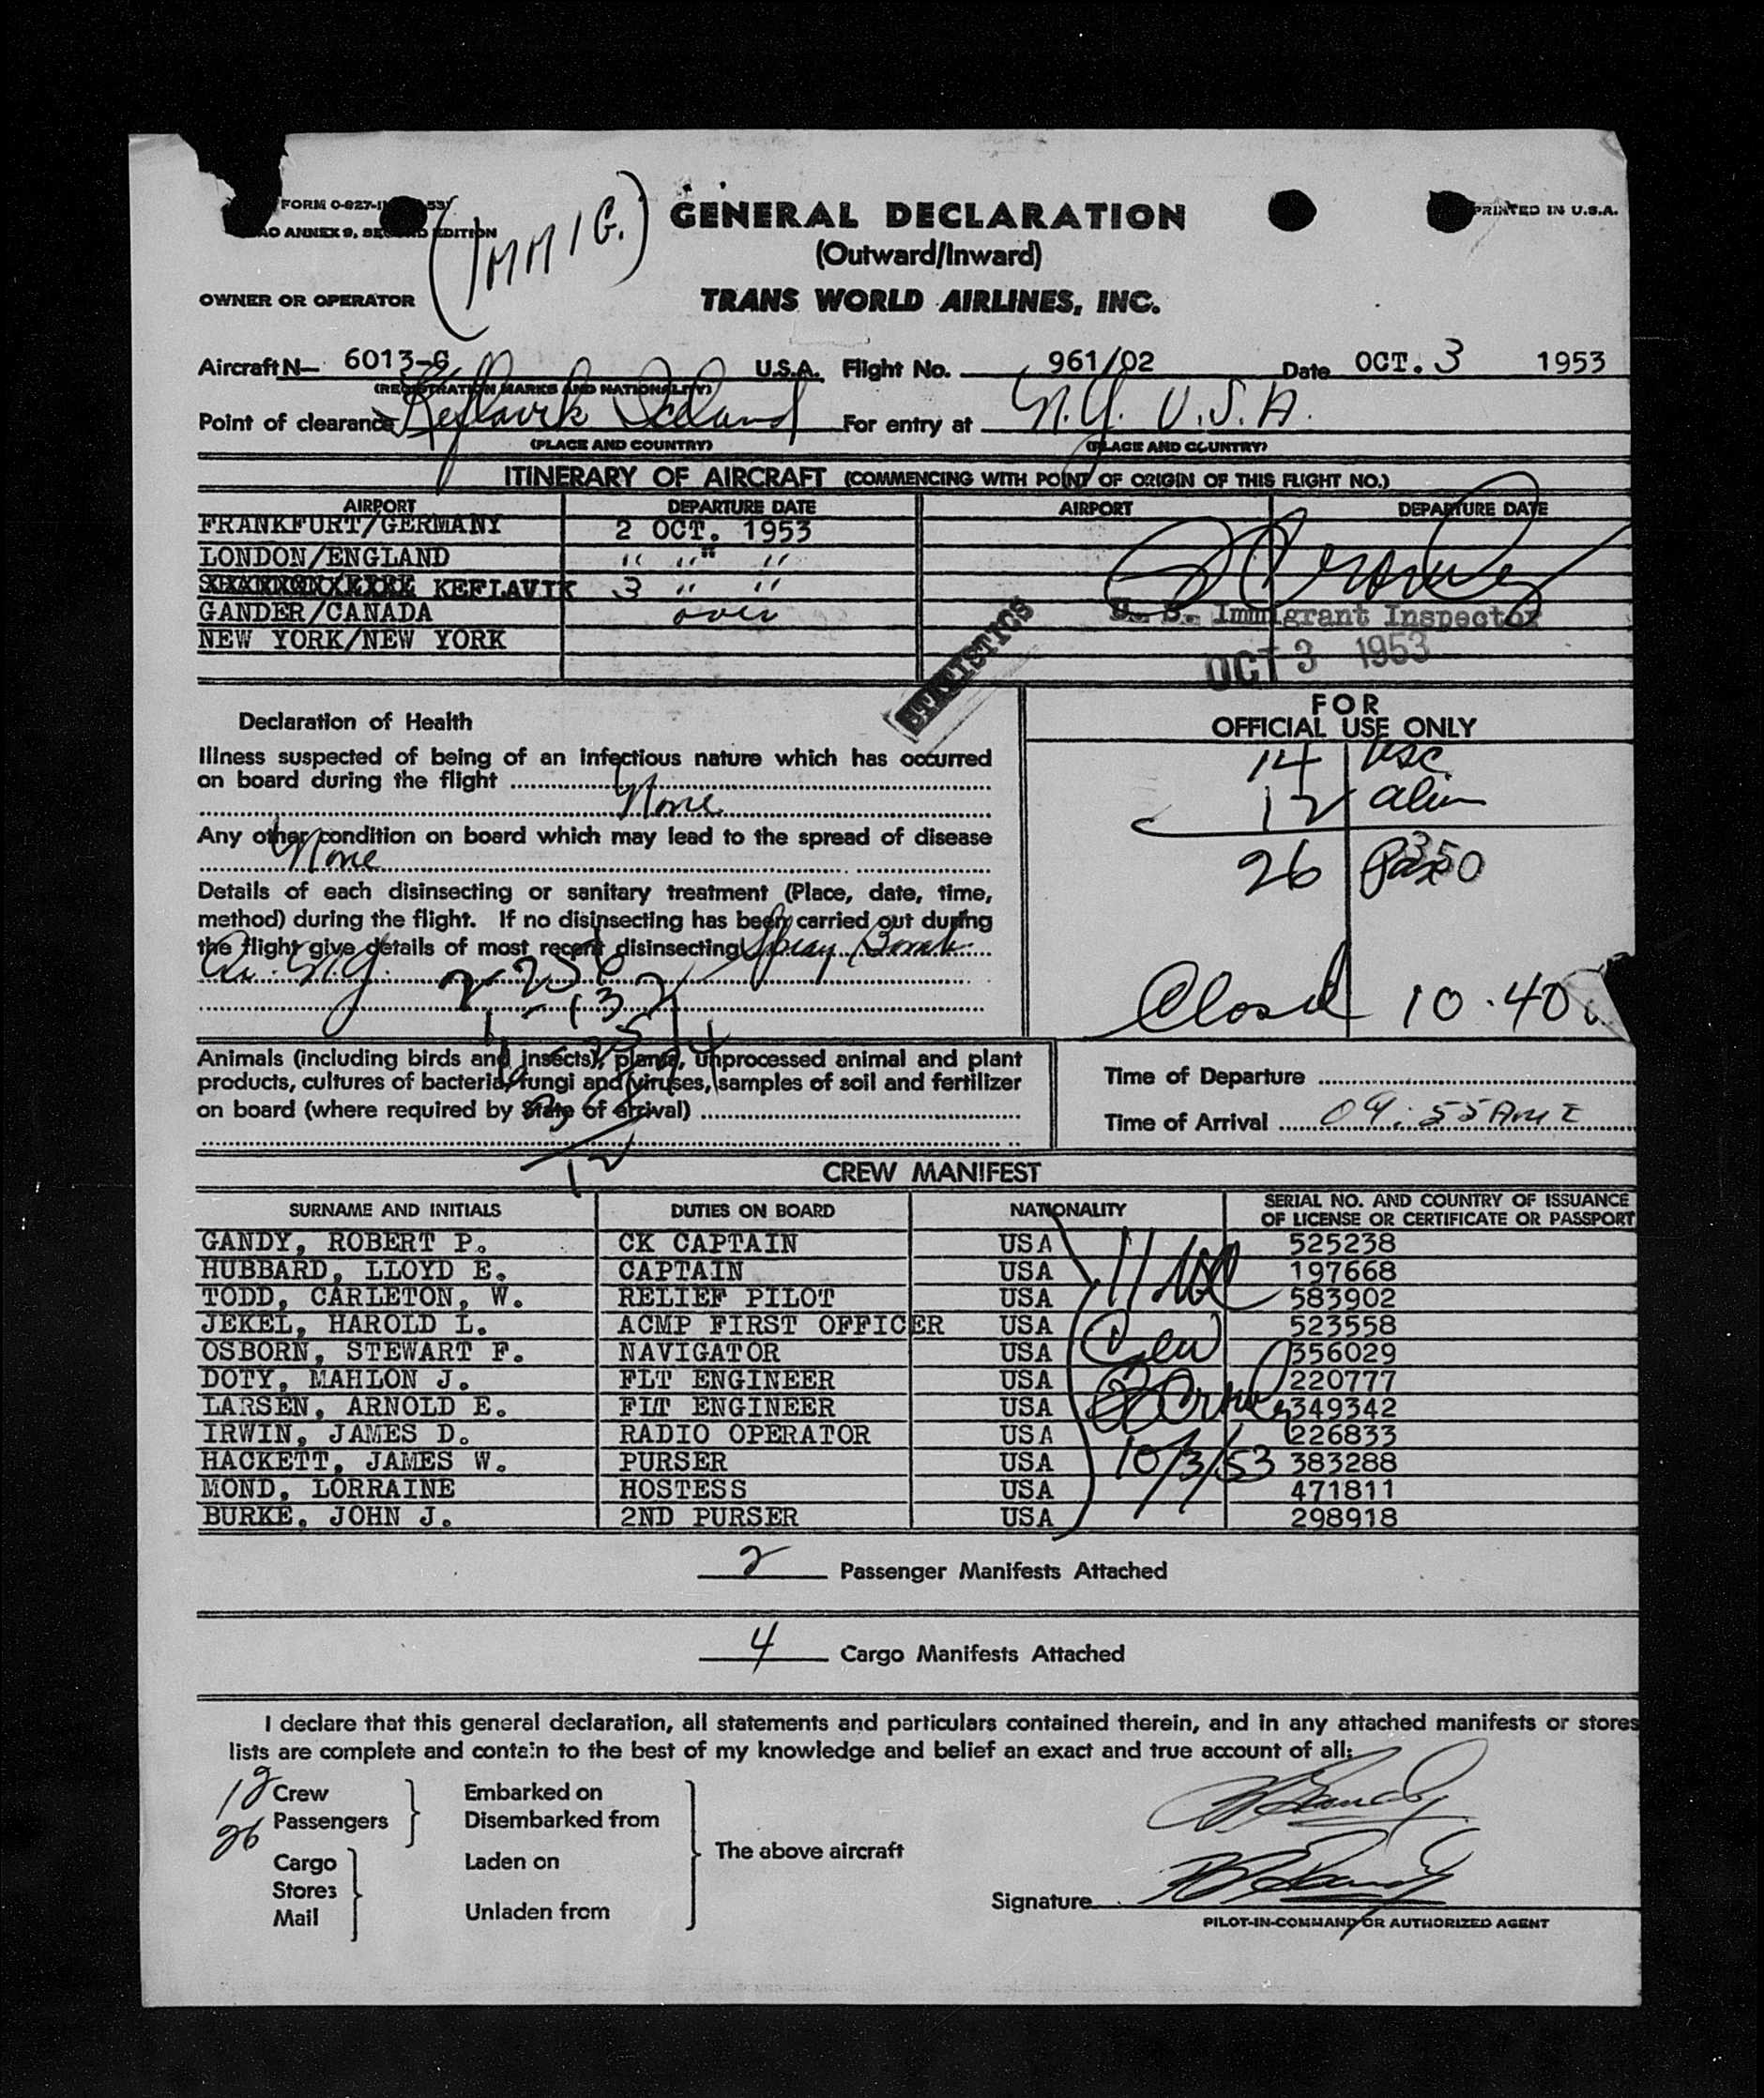 FORM O-827-
53)
PRINTED IN U.S.A.
AO ANNEX 9, SECOND EDITION
(IMMIG.)
GENERAL DECLARATION
(Outward/Inward)
OWNER OR OPERATOR
TRANS WORLD AIRLINES, INC.
Aircraft N— 6013-C U.S.A. Flight No. 961/02 Date OCT. 3 1953
(REGISTRATION MARKS AND NATIONALITY)
Point of clearance Keflavik Iceland For entry at N.Y. U.S.A.
(PLACE AND COUNTRY) (PLACE AND COUNTRY)
ITINERARY OF AIRCRAFT (COMMENCING WITH POINT OF ORIGIN OF THIS FLIGHT NO.)
AIRPORT DEPARTURE DATE AIRPORT DEPARTURE DATE
FRANKFURT/GERMANY 2 OCT. 1953
LONDON/ENGLAND " " "
KEFLAVIK 3 " "
GANDER/CANADA over
NEW YORK/NEW YORK
U. S. Immigrant Inspector
OCT 3 1953
STATISTICS
Declaration of Health
Illness suspected of being of an infectious nature which has occurred
on board during the flight
None
Any other condition on board which may lead to the spread of disease
None
Details of each disinsecting or sanitary treatment (Place, date, time,
method) during the flight. If no disinsecting has been carried out during
the flight give details of most recent disinsecting Spray Bomb
FOR
OFFICIAL USE ONLY
14 USC
12 alien
26 Pax
Closed 10.40
Animals (including birds and insects), plants, unprocessed animal and plant
products, cultures of bacteria, fungi and viruses, samples of soil and fertilizer
on board (where required by State of arrival)
12
Time of Departure
Time of Arrival 09:55 AM E
CREW MANIFEST
SURNAME AND INITIALS DUTIES ON BOARD NATIONALITY SERIAL NO. AND COUNTRY OF ISSUANCE
OF LICENSE OR CERTIFICATE OR PASSPORT
GANDY, ROBERT P. CK CAPTAIN USA 525238
HUBBARD, LLOYD E. CAPTAIN USA 197668
TODD, CARLETON, W. RELIEF PILOT USA 583902
JEKEL, HAROLD L. ACMP FIRST OFFICER USA 523558
OSBORN, STEWART F. NAVIGATOR USA 356029
DOTY, MAHLON J. FLT ENGINEER USA 220777
LARSEN, ARNOLD E. FLT ENGINEER USA 349342
IRWIN, JAMES D. RADIO OPERATOR USA 226833
HACKETT, JAMES W. PURSER USA 383288
MOND, LORRAINE HOSTESS USA 471811
BURKE, JOHN J. 2ND PURSER USA 298918
11 USC
Crew
10/3/53
2 Passenger Manifests Attached
4 Cargo Manifests Attached
I declare that this general declaration, all statements and particulars contained therein, and in any attached manifests or stores
lists are complete and contain to the best of my knowledge and belief an exact and true account of all:
12 Crew Embarked on
26 Passengers Disembarked from
The above aircraft
Cargo Laden on
Stores
Mail Unladen from
Signature R P Gandy
PILOT-IN-COMMAND OR AUTHORIZED AGENT